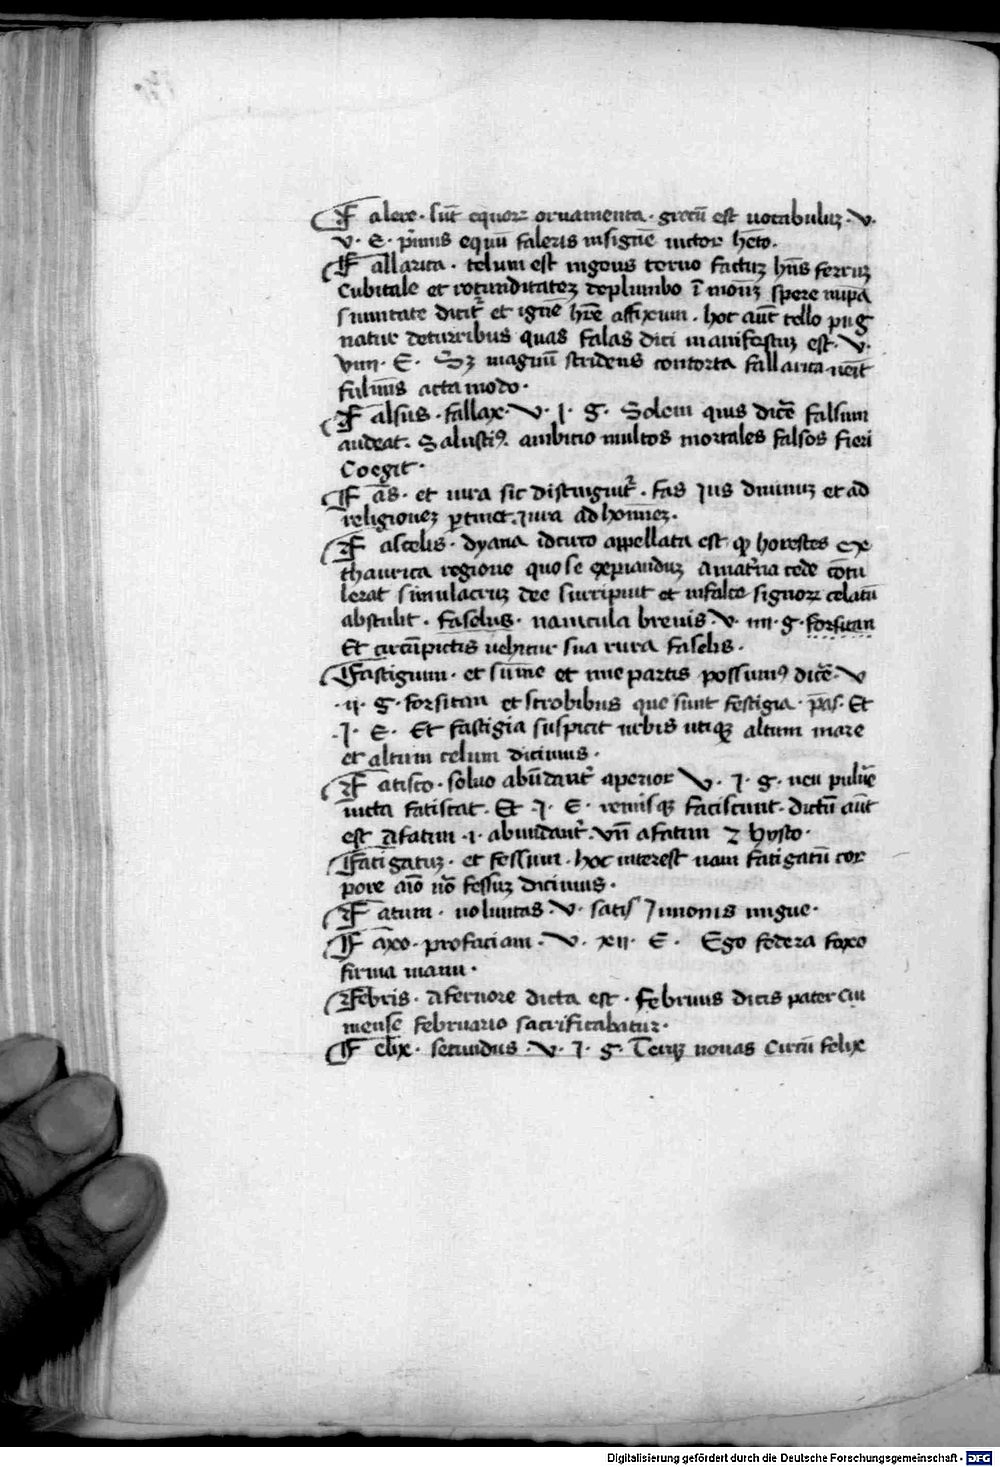 Falere · sūt equoꝝ ornamenta · grecū est uocabuluꝫ · v ·
v · E · pͥmus equū faleris insignē uictor hēto ·
Fallarica · telum est ingens torno factuꝫ hn̄s ferruꝫ
cubitale et rotunditateꝫ deplumbo ī modūꝫ spere
sumitate dicit᷑ et ignē hr̄e affixum · hoc aūt tello pug
natur deturribus quas falas dici manifestuꝫ est · v ·
viiii · E · Sꝫ magnū stridens contorta fallarica ueīt
fulmīs acta modo ·
Falsus · fallax · v · j · g · Solem quis dicē falsum
audeat · Salustiꝰ · ambitio multos mortales falsos fieri
Coegit ·
Fas · et iura sic distinguit᷑ · fas Jus diuinuꝫ et ad
religioneꝫ ꝑtinet · iura ad hoīneꝫ ·
Fascelis · dyana idcirco appellata est ꝙ horestes ex
thaurica regione quo se expianduꝫ amatͥna cede cōtu
lerat simulacruꝫ dee surripuit et infasce lignoꝝ celatū
abstulit · faselus · nauicula breuis · v · iiii · g · forsitan
Et circūpictis uehitur sua rura faselis ·
Fastigium · et sūme et ime partis possumꝰ dicē · v
· ij · g · forsitan et scrobibus que sunt festigia · Et
· j · E · Et fastigia suspicit urbis utiqꝫ altum mare
et altum celum dicimus ·
Fatisco · soluo abūdant᷑ aperior v · j · g · neu puluē
uicta fatiscat · Et · j · E · remisqꝫ faciscunt · dictū aūt
est afatim · i · abundant᷑ · vn̄ afatim ⁊ hysto ·
Fatigatuꝫ · et fessum · hoc interest nam fatigatū cor
pore aīo uō fessuꝫ dicimus ·
Fatum · uoluntas · v · satis Junonis ·
Faxo · profaciam · v · xii · E · Ego federa faxo
firma manu ·
Febris · aferuore dicta est · Februus dicis pater cui
mense februario sacrificabatur ·
Felix · secundus · v · j · g · Terqꝫ nouas circū felix
Digitalisierung gefördert durch die Deutsche Forschungsgemeinschaft - DFG